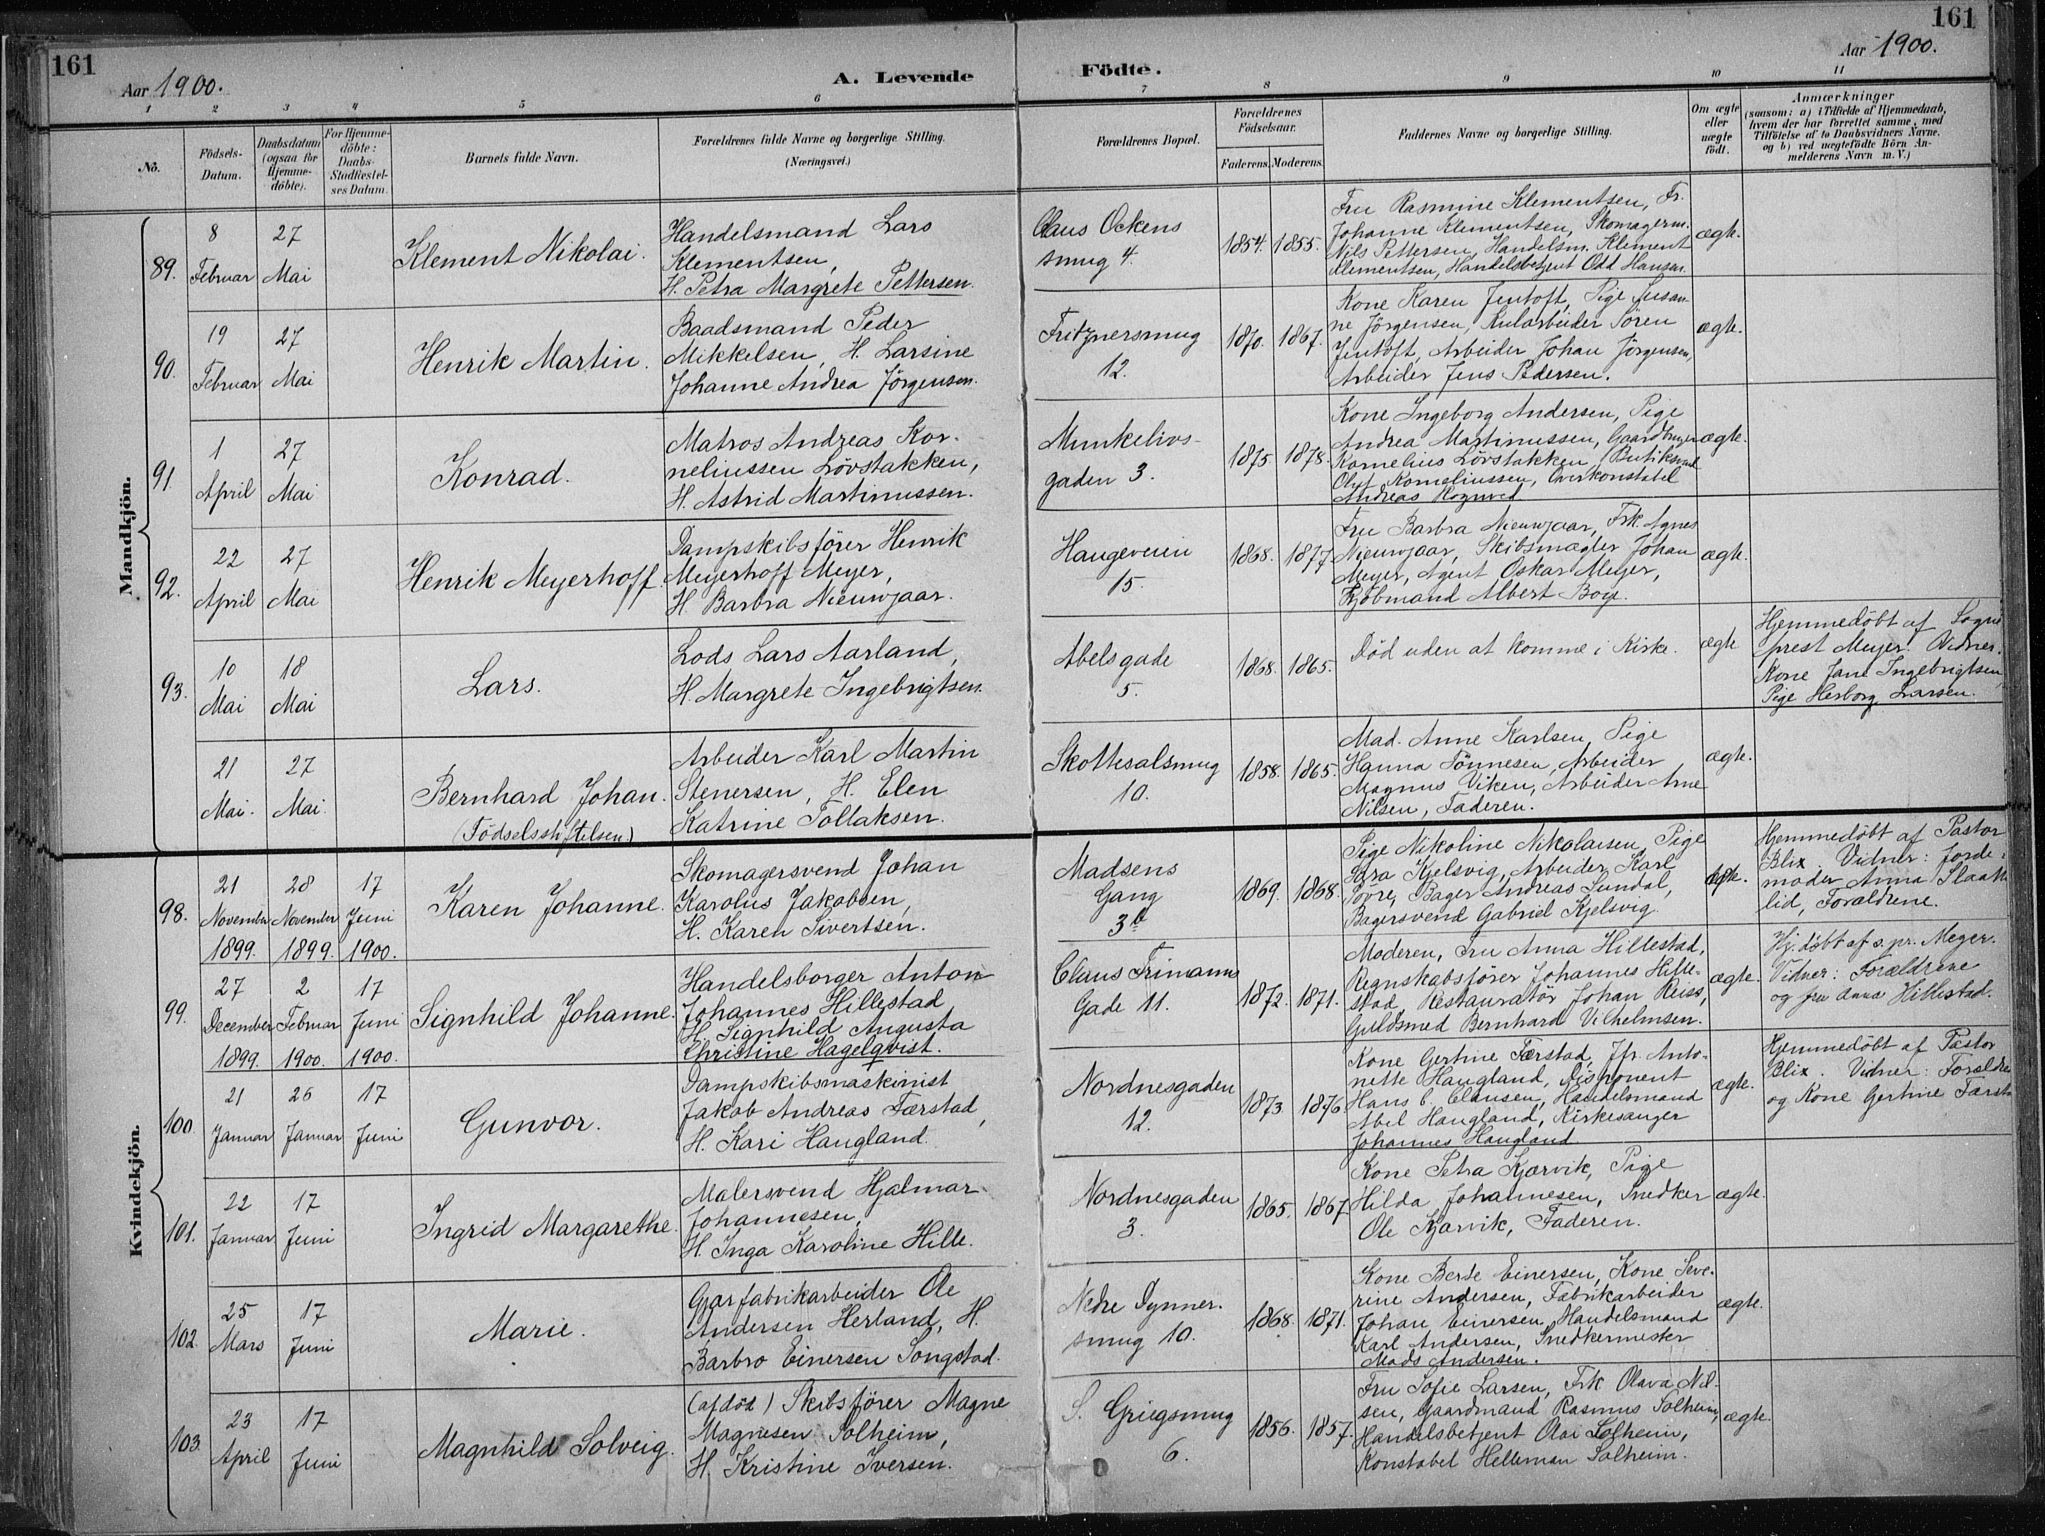 161
Aar 1900.
A. Levende
Födte.
161
Aar 1900.
1 2 3 4 5 6 7 8 9 10 11
No.
Födsels-
Datum.
Daabsdatum
(ogsaa for
Hjemme-
döbte).
For Hjemme-
döbte:
Daabs-
Stadfæstel-
ses Datum.
Barnets fulde Navn.
Forældrenes fulde Navne og borgerlige Stilling.
(Næringsvei.)
Forældrenes Bopæl.
Forældrenes
Födselsaar.
Faderens. Moderens.
Faddernes Navne og borgerlige Stilling.
Om ægte
eller
uægte
födt.
Anmærkninger
(saasom: a) i Tilfælde af Hjemmedaab,
hvem der har forrettet samme, med
Tilföielse af to Daabsvidners Navne,
og b) ved uægtefödte Börn An-
melderens Navn m. V.)
Mandkjön.
89.
8
Februar
27
Mai
Klement Nikolai.
Handelsmand Lars
Klementsen,
H. Petra Margrete Pettersen.
Claus Ockens
smug 4.
1854. 1855.
Fru Rasmine Klementsen, Fr.
Johanne Klementsen, Skomagerm.
Nils Pettersen, Handelsm. Klement
Klementsen, Handelsbetjent Odd Hansen.
ægte.
90.
19
Februar
27
Mai
Henrik Martin.
Baadsmand Peder
Mikkelsen, H. Larsine
Johanne Andrea Jörgensen.
Fritznersmug
12.
1870. 1867.
Kone Karen Jentoft, Pige Susan-
ne Jörgensen, Kularbeider Sören
Jentoft, Arbeider Johan Jörgensen,
Arbeider Jens Pedersen.
ægte.
91.
1
April
27
Mai
Konrad.
Matros Andreas Kor-
neliussen Lövstakken,
H. Astrid Martinussen.
Munkelivs-
gaden 3.
1875. 1878.
Kone Ingeborg Andersen, Pige
Andrea Martinussen, Gaardbruger
Kornelius Lövstakken,
Oluf Korneliussen, Overkonstabel
Andreas
ægte.
92.
22
April
27
Mai
Henrik Meyerhoff.
Dampskibsförer Henrik
Meyerhoff Meyer,
H. Barbra Nieuwjaar.
Haugeveien
15.
1868. 1877.
Fru Barbra Nieuwjaar, Frk. Agnes
Nieuwjaar, Skibsmægler Johan
Meyer, Agent Oskar Meyer,
Kjöbmand Albert Boye.
ægte.
93.
10
Mai
18
Mai
Lars.
Lods Lars Aarland,
H. Margrete Ingebrigtsen.
Abelsgade
5.
1868. 1865.
Död uden at komme i Kirke.
ægte
Hjemmedöbt af Sogne-
prest Meyer. Vidner.
Kone Jane Ingebrigtsen,
Pige Herborg Larsen.
21
Mai.
27
Mai.
Bernhard Johan.
(Födselsstiftelsen)
Arbeider Karl Martin
Stenersen, H. Elen
Katrine Tollaksen.
Skottesalsmug
10.
1858. 1865.
Mad. Anne Karlsen, Pige
Hanna Tönnesen, Arbeider
Magnus Viken, Arbeider Arne
Nilsen, Faderen.
ægte.
Kvindekjön.
98.
21
November
1899.
28
November
1899.
17
Juni
1900.
Karen Johanne.
Skomagersvend Johan
Karolus Jakobsen,
H. Karen Sivertsen.
Madsens
Gang
3b
1869. 1868.
Pige Nikoline Nikolaisen, Pige
Sara Kjelsvig, Arbeider Karl
Tövre, Bager Andreas Sundal,
Bagersvend Gabriel Kjelsvig.
ægte.
Hjemmedöbt af Pastor
Blix. Vidner: Jorde-
moder Anna Slaatte-
lid, Forældrene.
99.
27
December
1899.
2
Februar
1900.
17
Juni
1900.
Signhild Johanne.
Handelsborger Anton
Johannes Hillestad,
H. Signhild Augusta
Christine Hagelqvist.
Claus Frimanns
Gade 11.
1872. 1871.
Moderen, Fru Anna Hillestad,
Regnskabsförer Johannes Hille-
stad, Restauratör Johan Reiss,
Guldsmed Bernhard Vilhelmsen.
ægte.
Hj. döbt af s.pr. Meyer.
Vidner: Forældrene
og fru Anna Hillestad.
100.
21
Januar
26
Januar
17
Juni
Gunvor.
Dampskibsmaskinist
Jakob Andreas Færstad,
H. Kari Haugland.
Nordnesgaden
12.
1873. 1876.
Kone Gertine Færstad, Jfr. Anto-
nette Haugland, Disponent
Hans C. Clausen, Handelsmand
Abel Haugland, Kirkesanger
Johannes Haugland
ægte.
Hjemmedöbt af Pastor
Blix. Vidner: Forældre
og Kone Gertine Færsta
101.
22
Januar
17
Juni
Ingrid Margarethe.
Malersvend Hjalmar
Johannesen,
H. Inga Karoline Hille.
Nordnesgaden
3.
1865. 1867.
Kone Petra Kjærvik, Pige
Hilda Johannesen, Snedker
Ole Kjærvik, Faderen.
ægte.
102.
25
Mars
17
Juni
Marie.
Garfabrikarbeider Ole
Andersen Herland, H.
Barbro Einersen Songstad.
Nedre Dynner-
smug 10.
1868. 1871.
Kone Berte Einersen, Kone Seve-
rine Andersen, Fabrikarbeider
Johan Einersen, Handelsmand
Karl Andersen, Snedkermester
Mads Andersen.
ægte.
103.
23
April
17
Juni
Magnhild Solveig.
(afdöd) Skibsförer Magne
Magnesen Solheim,
H. Kristine Iversen.
S. Griegsmug
6.
1856. 1857.
Fru Sofie Larsen, Frk Olava Nil-
sen, Gaardmand Rasmus Solheim,
Handelsbetjent Olai Solheim,
Konstabel Helleman Solheim.
ægte.